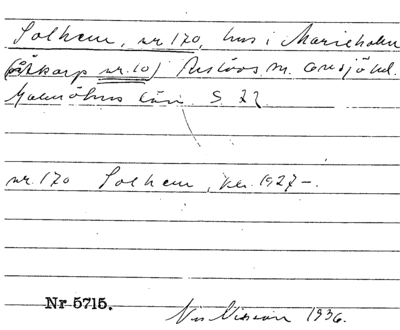 Solhem, nr 170, hus i Marieholm
(Åkarp nr. 10) Reslövs sn. Onsjö hd.
Malmöhus län. S. 22
nr. 170 Solhem, 1927-.
Nr 5715.
Nilsson 1936.